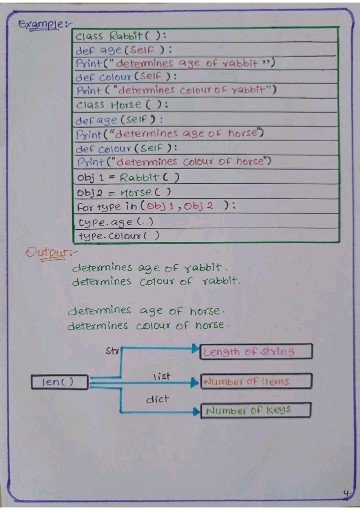 Example:-
class Rabbit( ):
def age(self):
Print("determines age of rabbit")
def colour(self):
Print("determines colour of rabbit")
class Horse( ):
def age(self):
Print("determines age of horse")
def colour(self):
Print("determines colour of horse")
Obj 1 = Rabbit( )
Obj 2 = Horse( )
For type in (Obj 1, Obj 2 ):
type.age( )
type.colour( )
Output:-
determines age of rabbit.
determines colour of rabbit.
determines age of horse.
determines colour of horse.
str
Length of string
len()
list
Number of Items
dict
Number of Keys
4